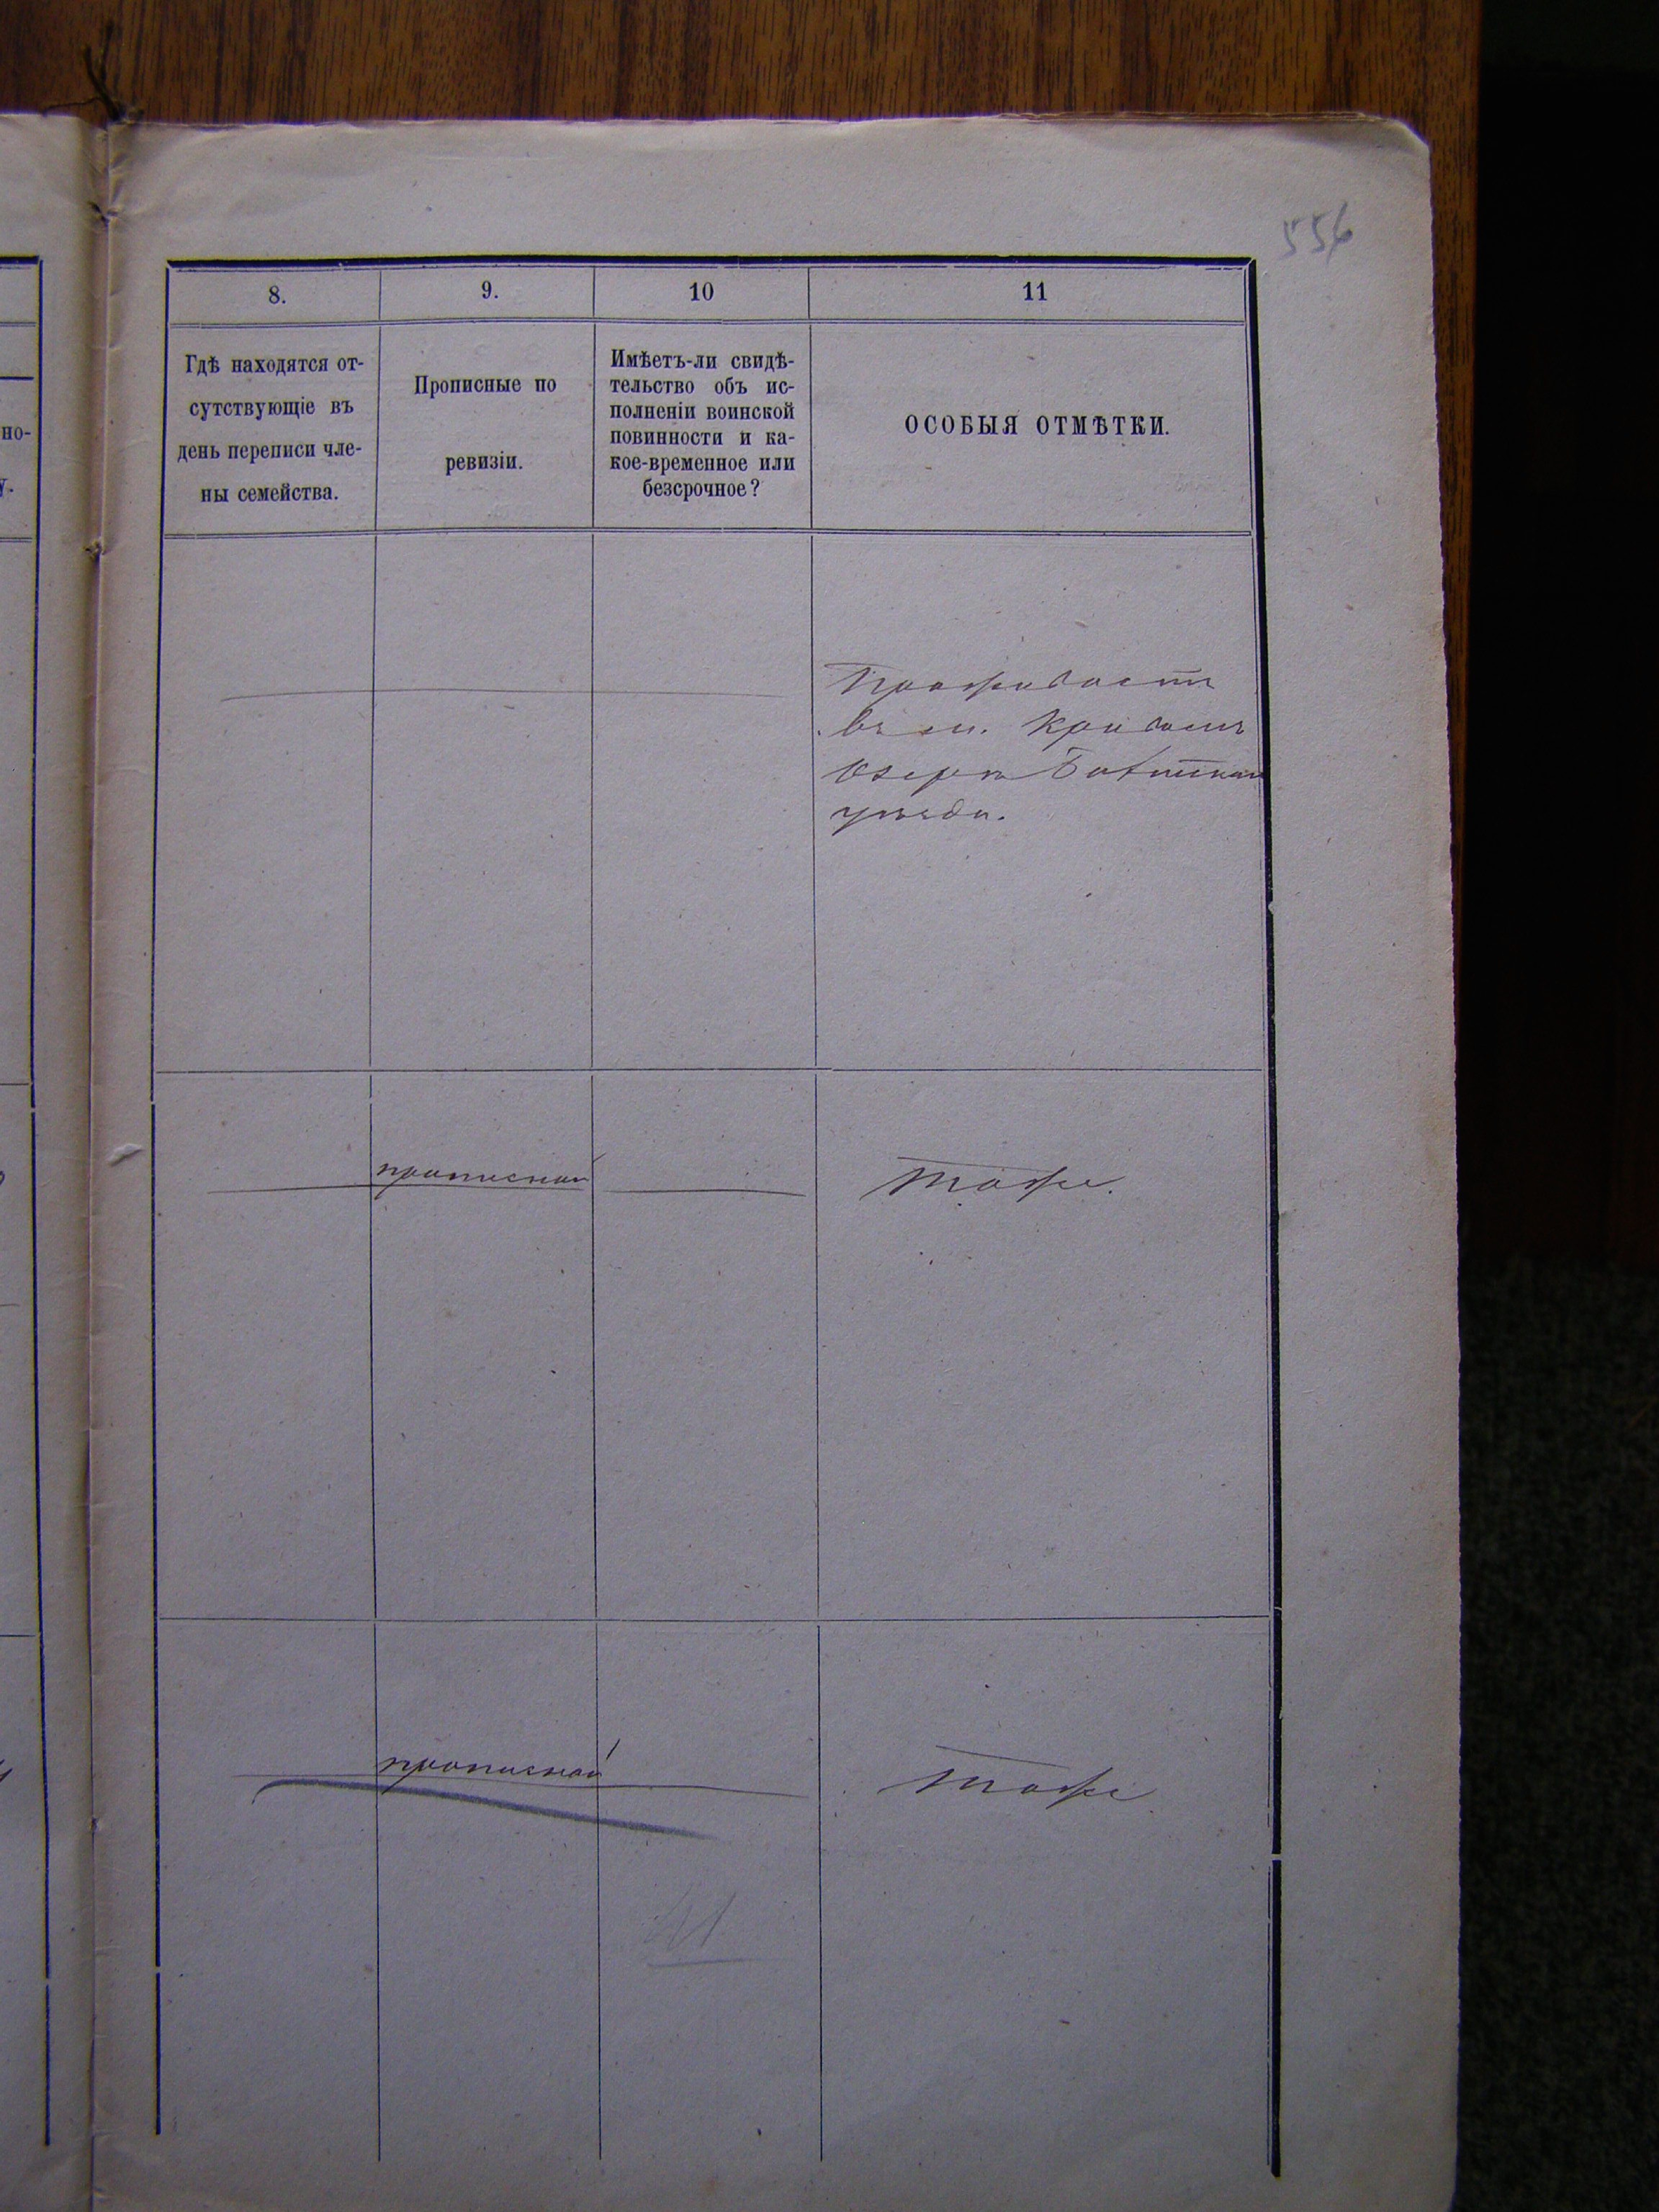 556
8.
9.
10
11
Гдѣ находятся от-
сутствующіе въ
день переписи чле-
ны семейства.
Прописные по
ревизіи.
Имѣетъ-ли свидѣ-
тельство объ ис-
полненіи воинской
повинности и ка-
кое-временное или
безсрочное?
ОСОБЫЯ ОТМѢТКИ.
но-
у.
Проживаетъ
въ м. Кривомъ
Озерѣ Балтскаго
уѣзда.
прописной
тоже.
прописной
тоже
41